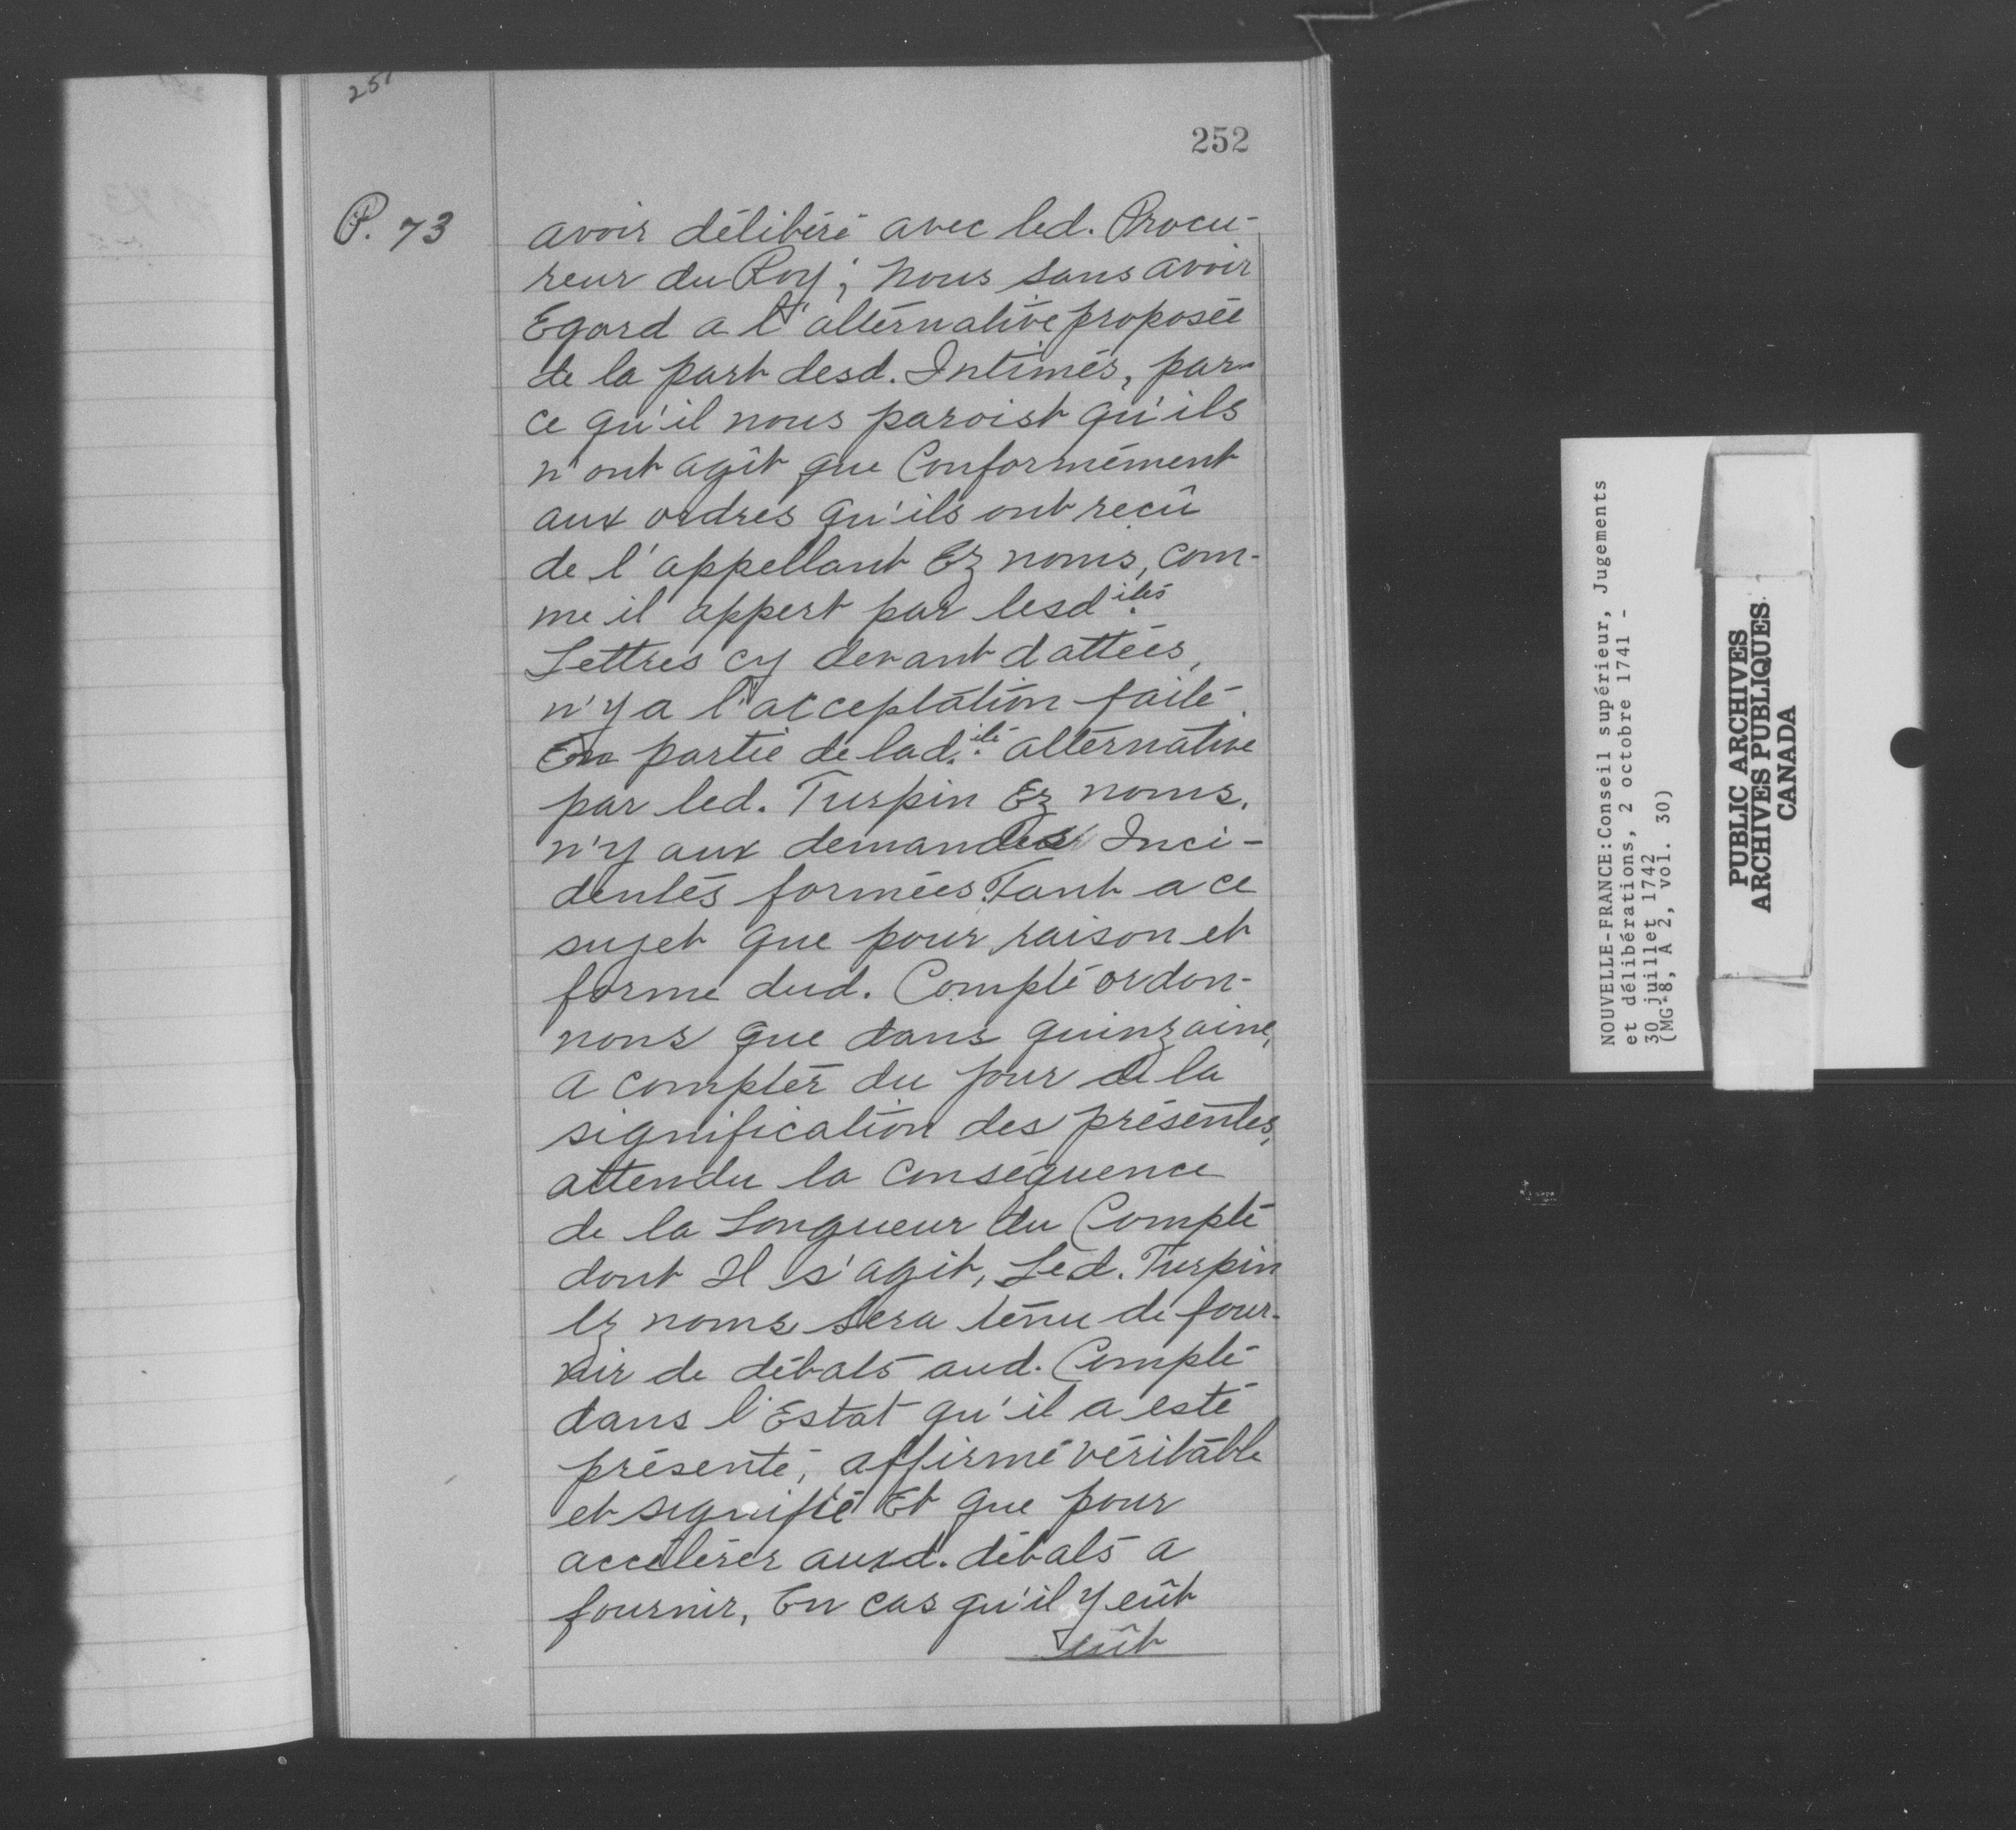 251
252
P. 73
avoir délibéré avec led. Procu-
reur du Roy; nous sans avoir
Egard a l'alternative proposée
de la part desd. Intimés, par-
ce qu'il nous paroist qu'ils
n'ont agît que Conformément
aux ordres qu'ils ont reçû
de l'appellant Ez noms, com-
me il appert par lesd.ites
Lettres cy devant dattées,
n'y a l'acceptation faite
En partie de lad.ite alternative
par led. Turpin Ez noms,
n'y aux demandes Inci-
dentes formées Tant a ce
sujet que pour raison et
forme dud. Compte ordon-
nons que dans quinzaine,
a compter du jour de la
signification des présentes,
attendu la Conséquence
de la Longueur du Compte
dont Il s'agit, Led. Turpin
Ez noms sera tenu de four-
nir de débats aud. Compte
dans l'Estat qu'il a esté
présenté, affirmé véritable
et signifié Et que pour
accélérer auxd. débats a
fournir, En cas qu'il y eût
eût
NOUVELLE-FRANCE:Conseil supérieur, Jugements
et délibérations, 2 octobre 1741 -
30 juillet 1742
(MG 8, A 2, vol. 30)
PUBLIC ARCHIVES
ARCHIVES PUBLIQUES
CANADA